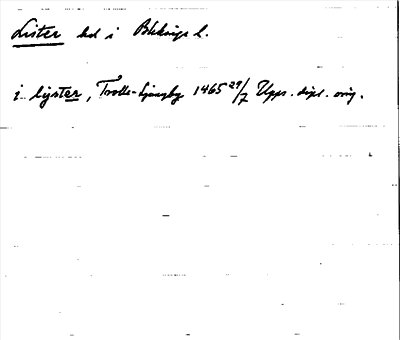 Lister hd i Blekinge l.
i lijster, Trolle-Ljungby 1465 29/7 Upps. dipl. orig.